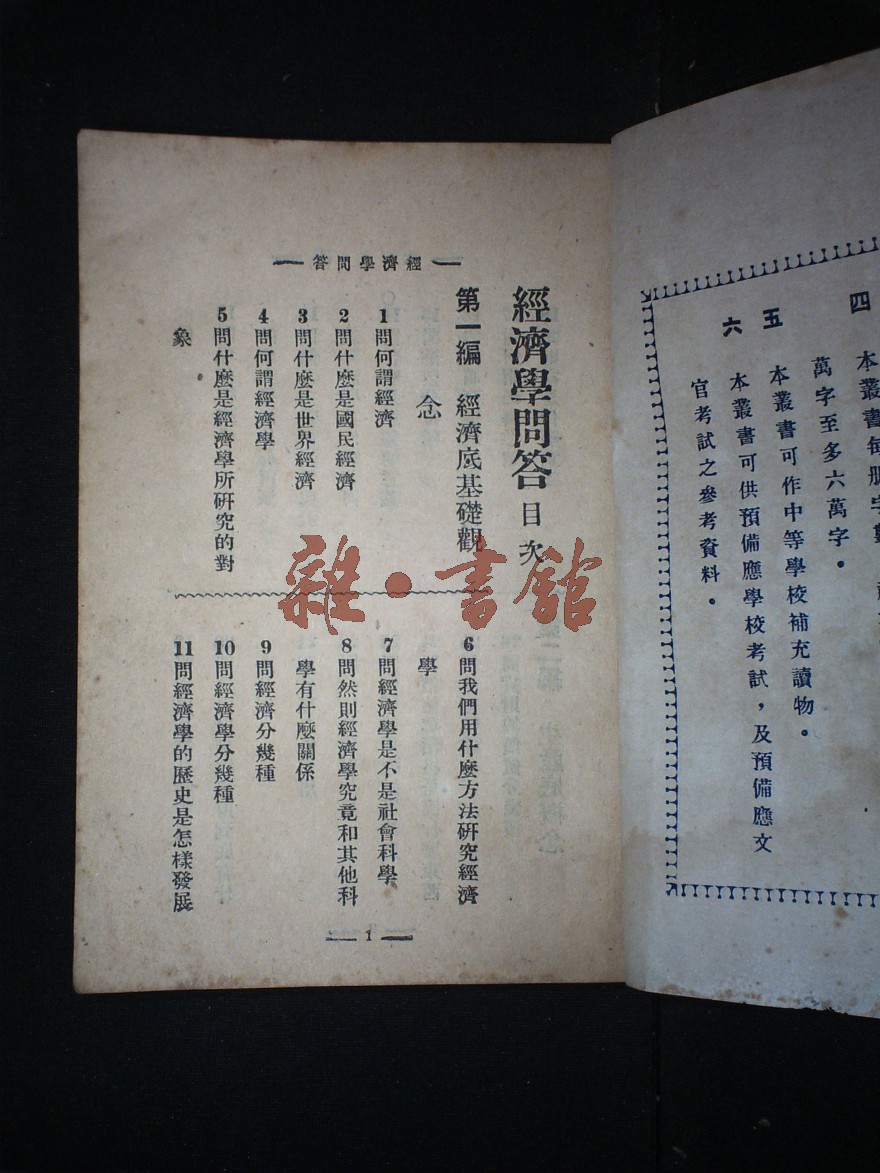 四
本叢書每册字數
萬字至多六萬字。
五
本叢書可作中等學校補充讀物。
六
本叢書可供預備應學校考試，及預備應文
官考試之參考資料。
經濟學問答
經濟學問答 目次
第一編 經濟底基礎觀
念
1 問何謂經濟
2 問什麼是國民經濟
3 問什麼是世界經濟
4 問何謂經濟學
5 問什麼是經濟學所研究的對
象
6 問我們用什麼方法研究經濟
學
7 問經濟學是不是社會科學
8 問然則經濟學究竟和其他科
學有什麼關係
9 問經濟分幾種
10 問經濟學分幾種
11 問經濟學的歷史是怎樣發展
1
雜·書館